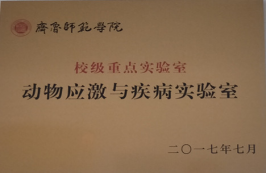 齊鲁師範學院
校级重点实验室
动物应激与疾病实验室
二〇一七年七月